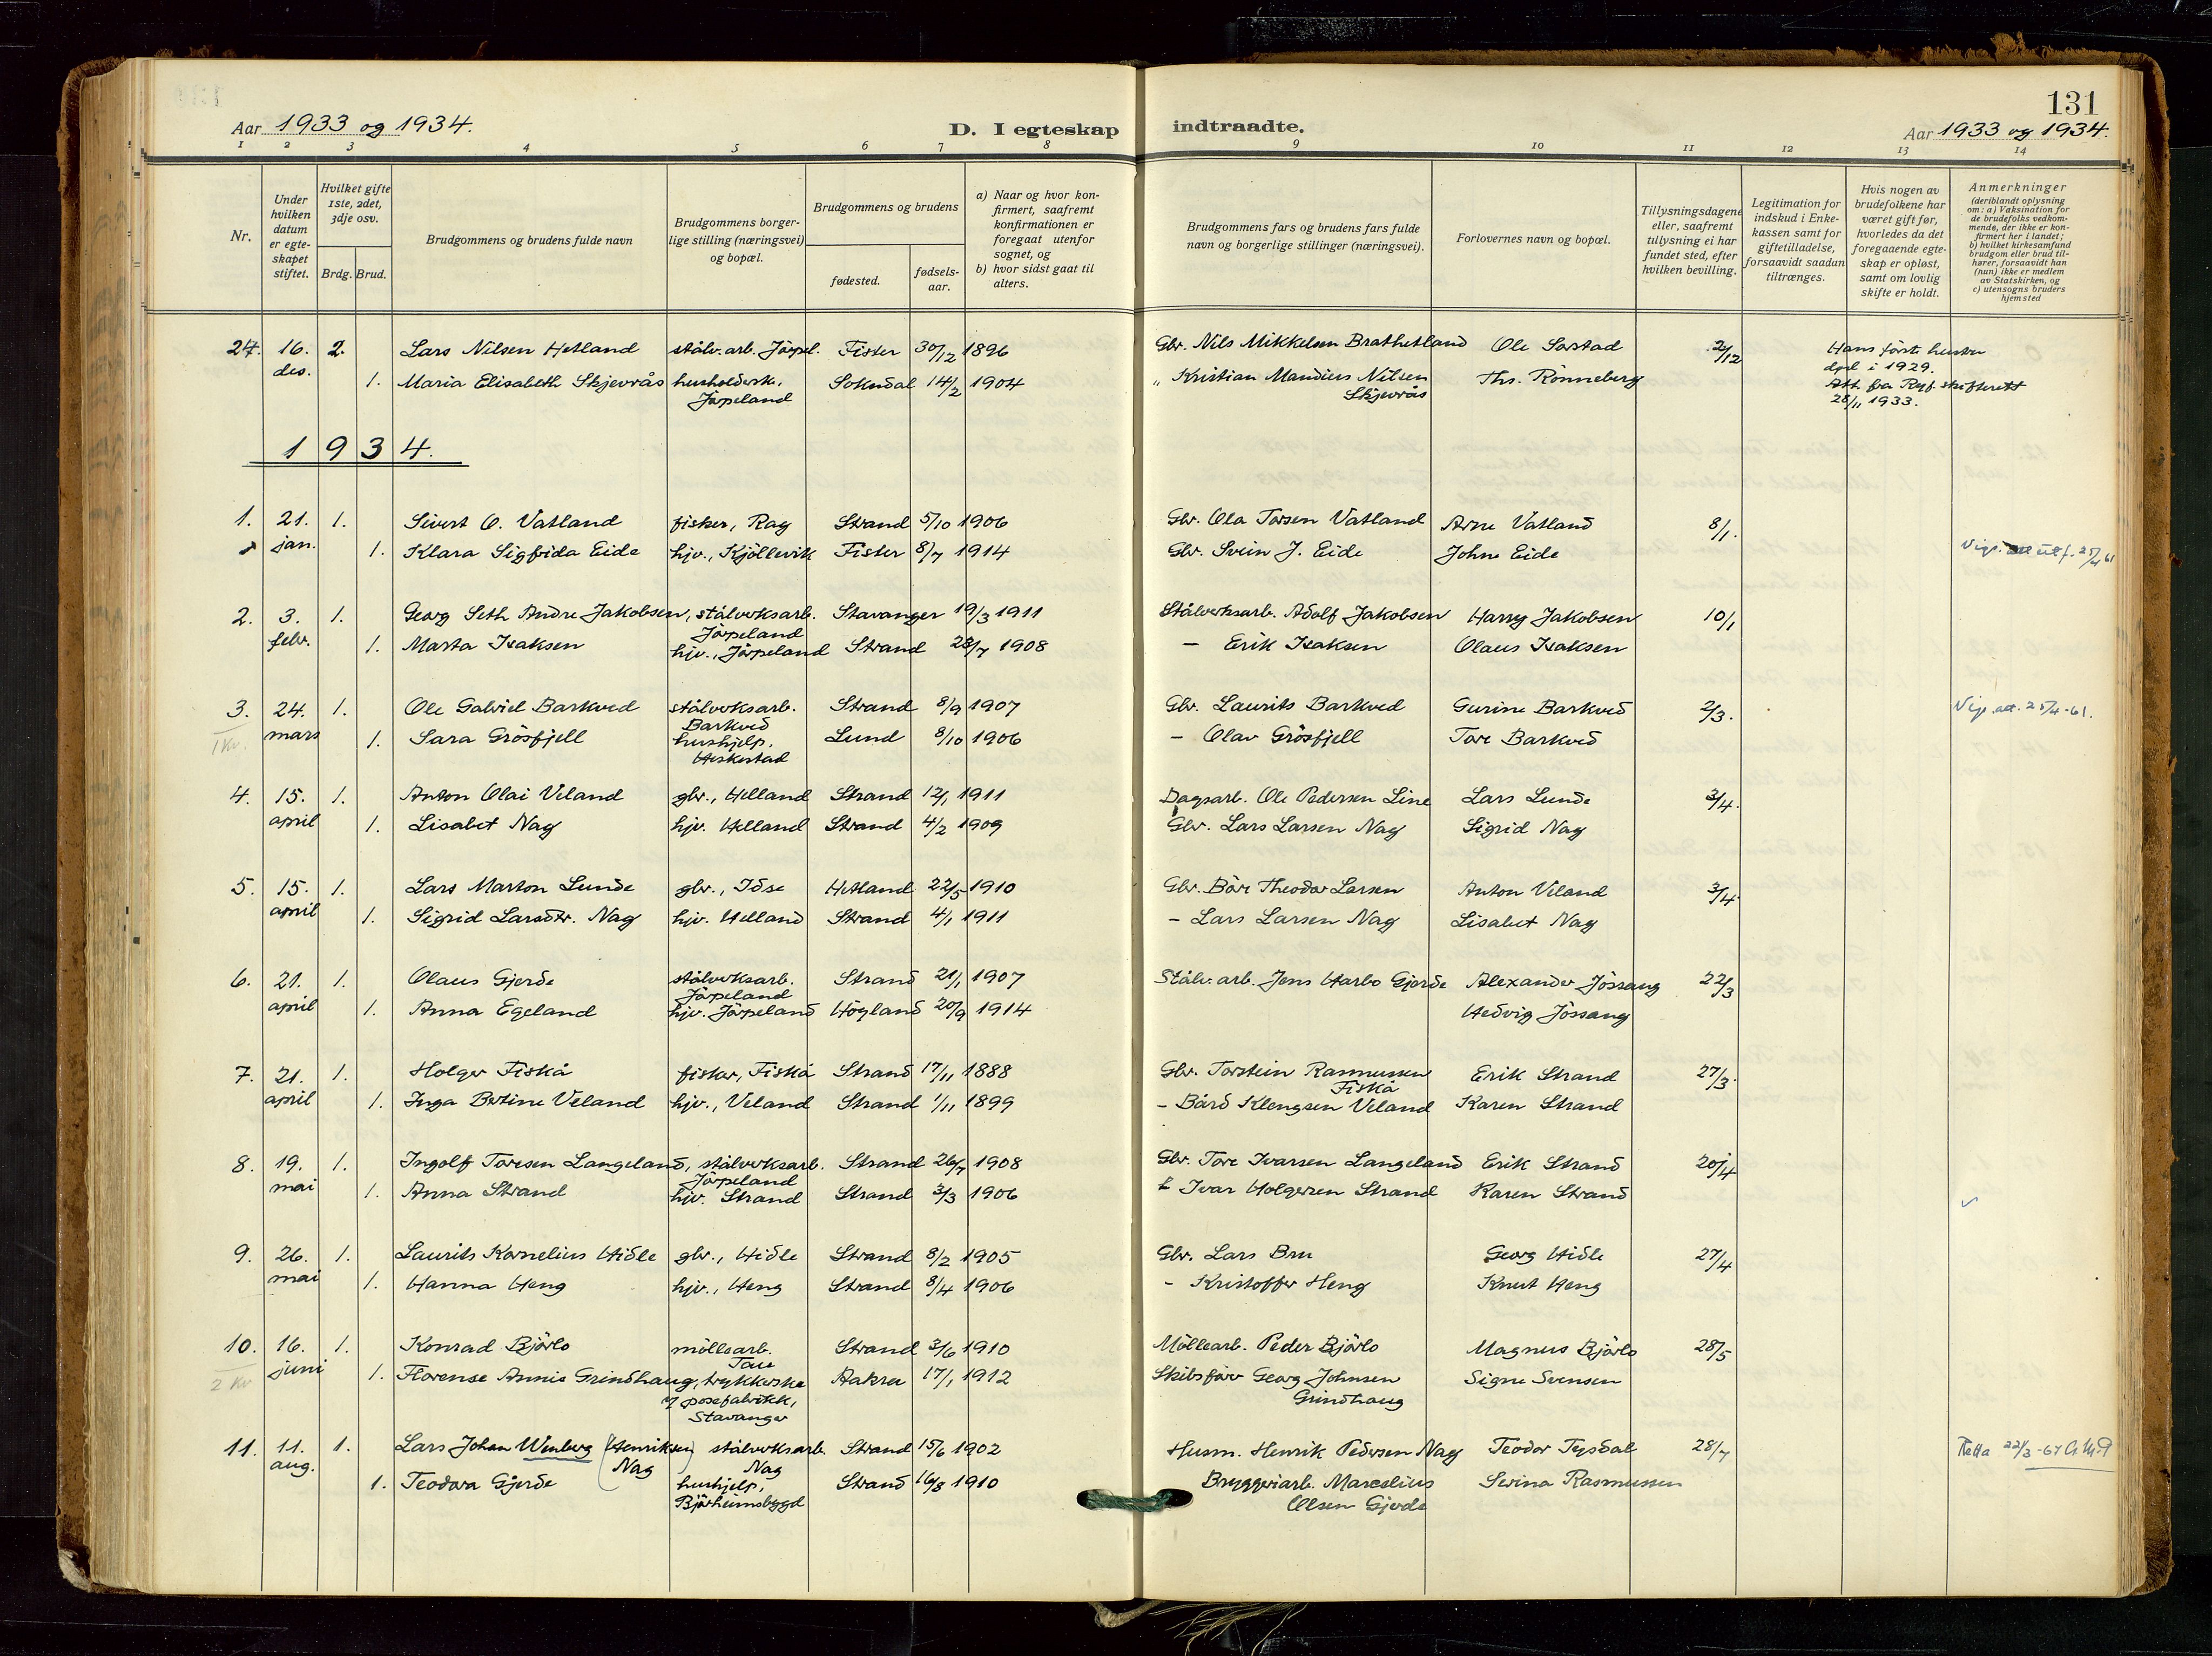 131
Aar 1933 og 1934.
D. I egteskap indtraadte.
Aar 1933 og 1934.
1 2 3 4 5 6 7 8 9 10 11 12 13 14
Nr.
Under hvilken datum er egte-skapet stiftet.
Hvilket gifte 1ste, 2det, 3dje osv.
Brdg. Brud.
Brudgommens og brudens fulde navn
Brudgommens borger-lige stilling (næringsvei) og bopæl.
Brudgommens og brudens
fødested.
fødsels-aar.
a) Naar og hvor kon-firmert, saafremt konfirmationen er foregaat utenfor sognet, og
b) hvor sidst gaat til alters.
Brudgommens fars og brudens fars fulde navn og borgerlige stillinger (næringsvei).
Forlovernes navn og bopæl.
Tillysningsdagene eller, saafremt tillysning ei har fundet sted, efter hvilken bevilling.
Legitimation for indskud i Enke-kassen samt for giftetilladelse, forsaavidt saadan tiltrænges.
Hvis nogen av brudefolkene har været gift før, hvorledes da det foregaaende egte-skap er opløst, samt om lovlig skifte er holdt.
Anmerkninger (deriblandt oplysning om: a) Vaksination for de brudefolks vedkom-mende, der ikke er kon-firmert her i landet; b) hvilket kirkesamfund brudgom eller brud til-hører, forsaavidt han (hun) ikke er medlem av Statskirken, og c) utensogns bruders hjemsted
24. 16. 2. Lars Nilsen Hetland stålv.arb. Jörpel. Fister 30/12 1896 Gbr. Nils Mikkelsen Brathetland Ole Sørstad 2/12 Hans förste hustru
des. 1. Maria Elisabeth Skjevrås husholderske, Sokndal 14/2 1904 " Kristian Mandius Nilsen Ths. Rönneberg död i 1929.
Jörpeland Skjevrås Att. fra Ryf. skifterett
28/11 1933.
1934.
1. 21. 1. Sivert O. Vatland fisker, Rag Strand 5/10 1906 Gbr. Ola Torsen Vatland Arne Vatland 8/1.
jan. 1. Klara Sigfrida Eide hjv., Kjöllevik Fister 8/7 1914 Gbr. Svein J. Eide Johne Eide Vigs. att utf. 25/4 61
2. 3. 1. Georg Seth Andre Jakobsen, stålverksarb. Stavanger 19/3 1911 Stålverksarb. Adolf Jakobsen Harry Jakobsen 10/1
Jörpeland
febr. 1. Marta Isaksen hjv., Jörpeland Strand 28/7 1908 – Erik Isaksen Olaus Isaksen
3. 24. 1. Ole Gabriel Barkved stålverksarb. Strand 8/9 1907 Gbr. Laurits Barkved Gurine Barkved 2/3. Vigs.att. 25/4-61.
1 Kv. Barkved
mars 1. Sara Grösfjell hushjelp, Lund 8/10 1906 – Olav Grösfjell Tore Barkved
Heskestad
4. 15. 1. Anton Olai Veland gbr., Helland Strand 12/1 1911 Dagsarb. Ole Pedersen Line Lars Lunde 3/4.
april 1. Lisabet Nag hjv. Helland Strand 4/2 1909 Gbr. Lars Larsen Nag Sigrid Nag
5. 15. 1. Lars Marton Lunde gbr., Idse Hetland 22/5 1910 Gbr. Båre Theodor Larsen Anton Veland 3/4
april 1. Sigrid Larsdtr. Nag hjv. Helland Strand 4/1 1911 – Lars Larsen Nag Lisabet Nag
6. 21. 1. Olaus Gjerde stålverksarb. Strand 21/1 1907 Stålv.arb. Jens Harbo Gjerde Alexander Jössang 22/3
Jörpeland
april 1. Anna Egeland hjv. Jörpeland Högland 20/9 1914 Hedvig Jössang
7. 21. 1. Holger Fiskå fisker, Fiskå Strand 17/11 1888 Gbr. Torstein Rasmussen Erik Strand 27/3.
Fiskå
april 1. Inga Bertine Veland hjv., Veland Strand 1/11 1899 – Bård Klengsen Veland Karen Strand
8. 19. 1. Ingolf Toresen Langeland, stålverksarb. Strand 26/7 1908 Gbr. Tore Ivarsen Langeland Erik Strand 20/4
Jörpeland
mai 1. Anna Strand hjv. Strand Strand 3/3 1906 Ivar Holgersen Strand Karen Strand
9. 26. 1. Laurits Kornelius Hidle gbr., Hidle Strand 8/2 1905 Gbr. Lars Bru Georg Hidle 27/4
mai 1. Hanna Heng hjv., Heng Strand 8/4 1906 – Kristoffer Heng Knut Heng
10. 16. 1. Konrad Björlo möllearb. Strand 3/6 1910 Möllearb. Peder Björlo Magnus Björlo 28/5
Tau
2 Kv juni 1. Florense Annis Grindhaug, trykkerske Aakra 17/1 1912 Skibsförer Georg Johnsen Signe Svensen
posefabrikk, Grindhaug
Stavanger
11. 11. 1. Lars Johan Wenberg (Henriksen Nag) stålverksarb. Strand 15/6 1902 Husm. Henrik Pedersen Nag Teodor Tysdal 28/7 Retta 22/3-67
aug. Nag
1. Teodora Gjerde hushjelp, Strand 16/8 1910 Bryggeriarb. Marselius Serina Rasmussen
Björheimsbygd Olsen Gjerde